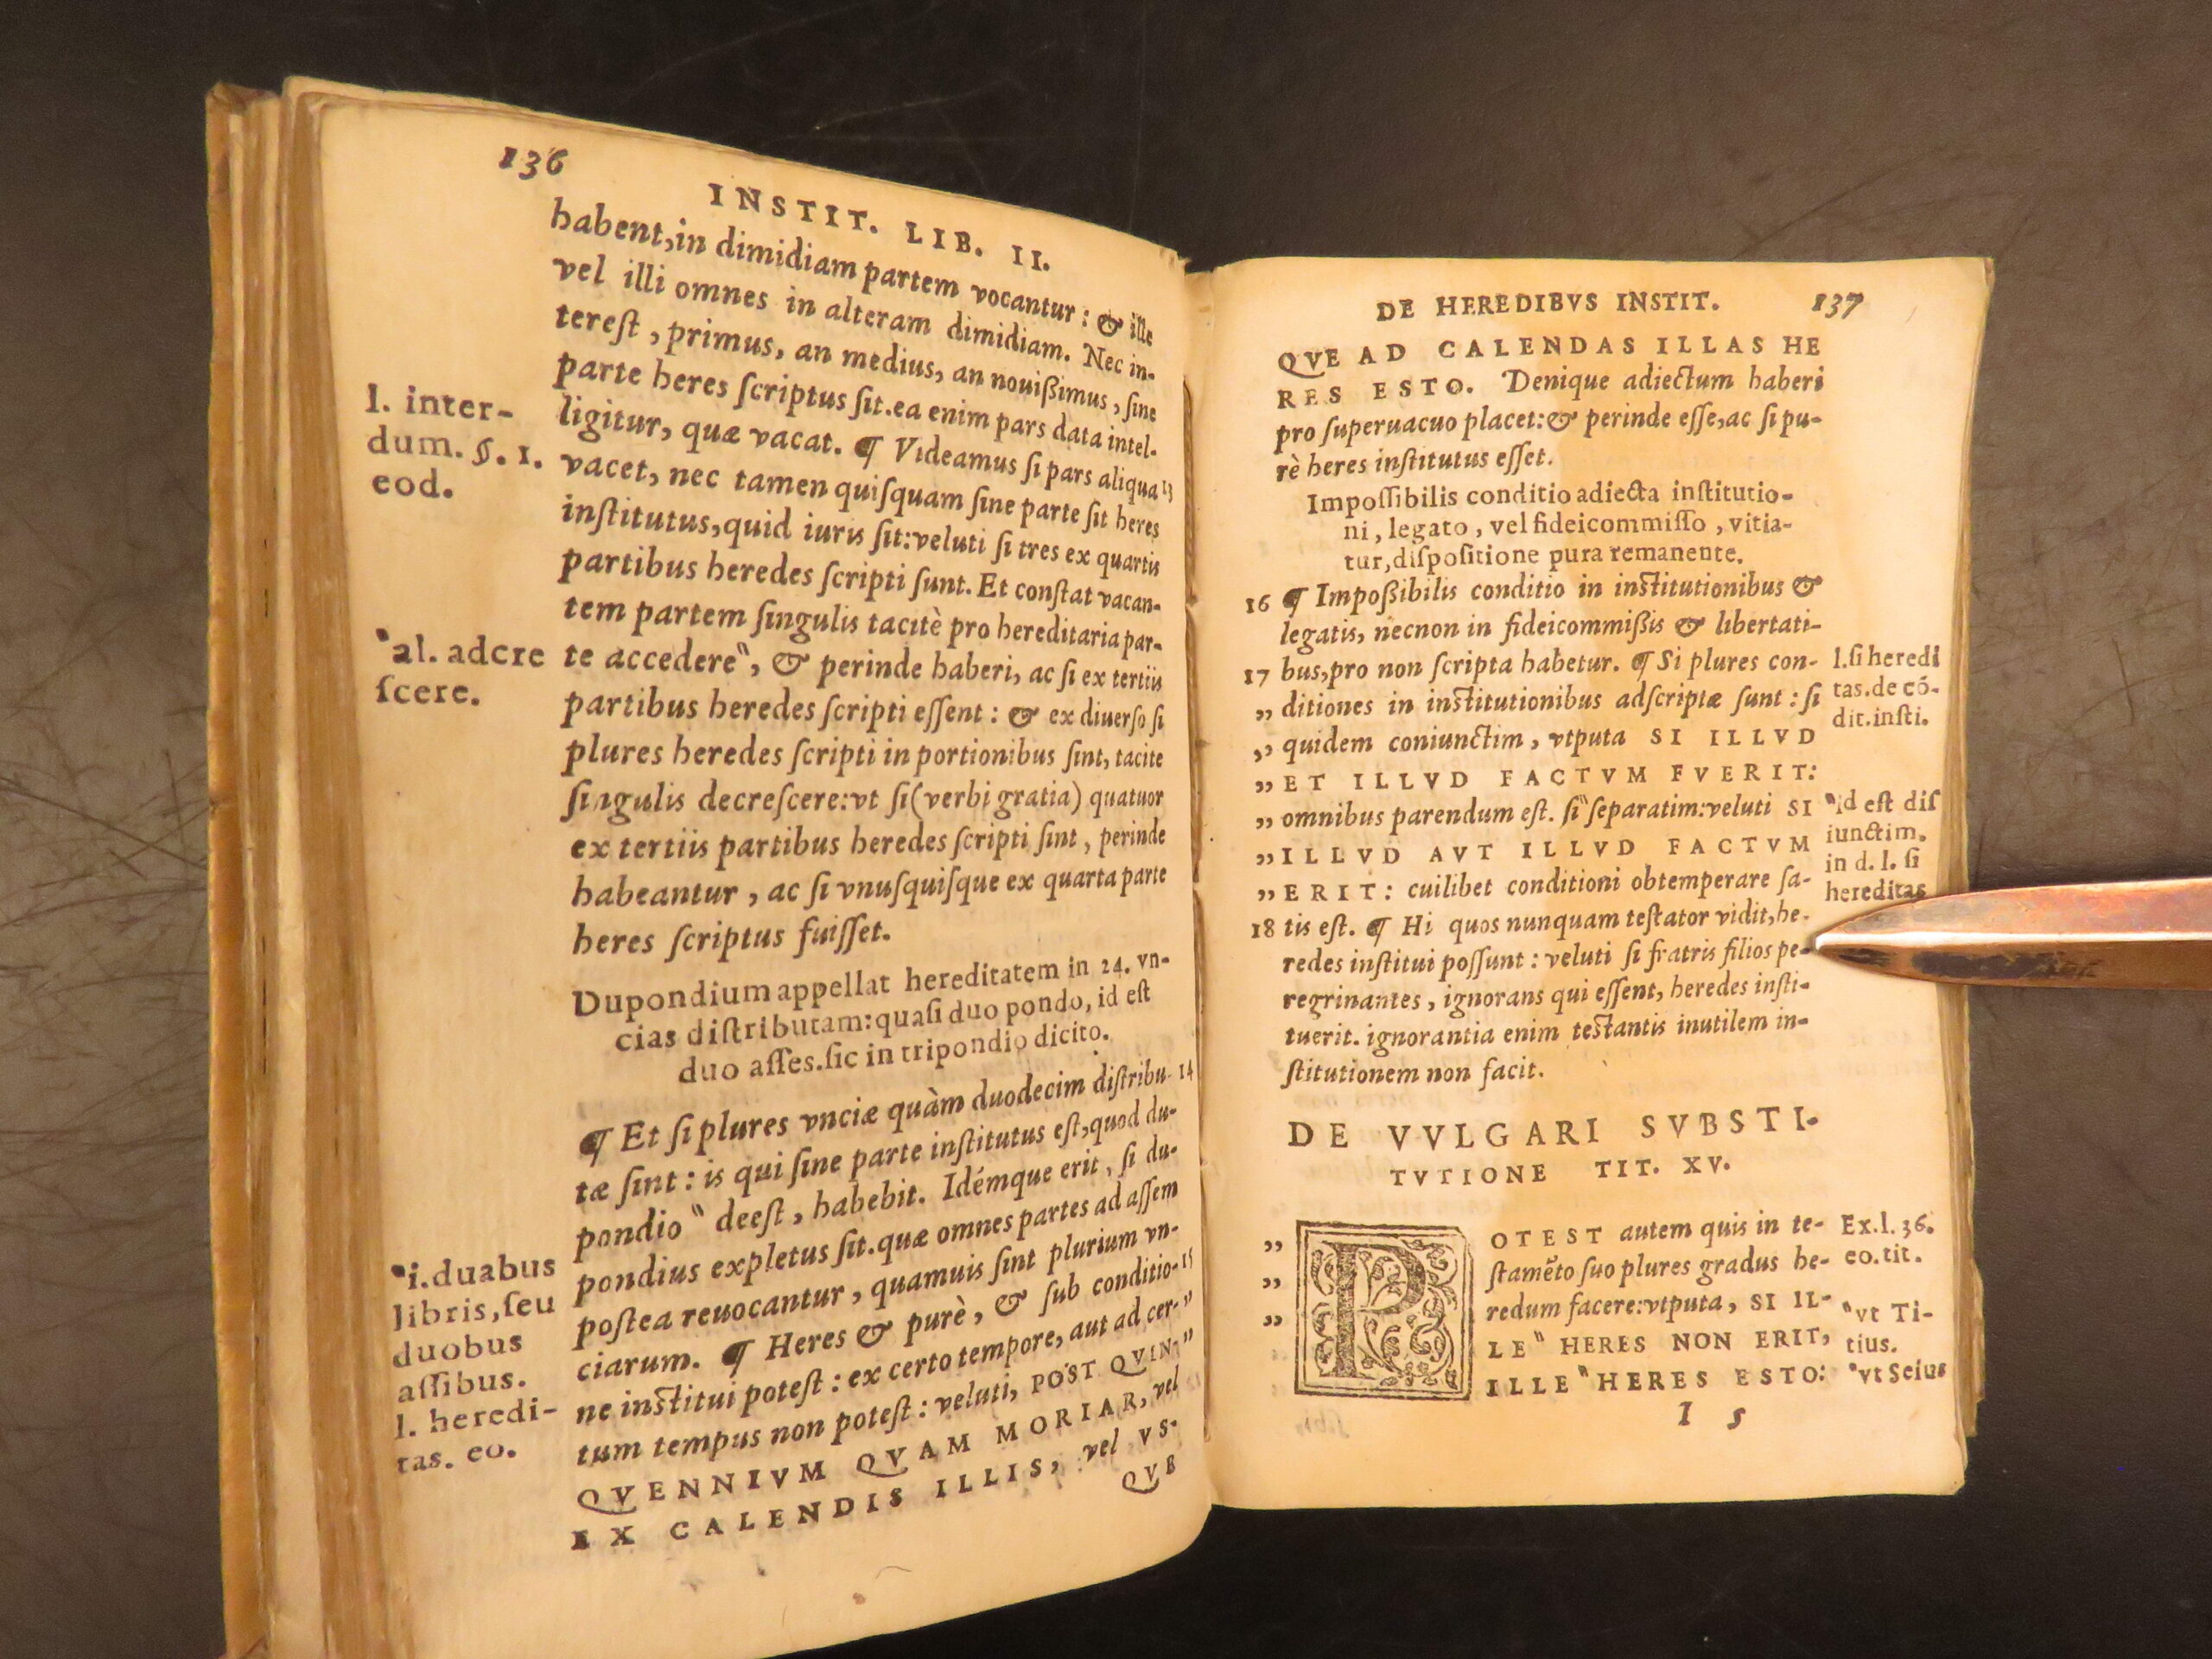 136
INSTIT. LIB. II.
habent,in dimidiam partem vocantur: & ille
vel illi omnes in alteram dimidiam. Nec in-
tereſt, primus, an medius, an nouißimus, ſine
parte heres ſcriptus ſit.ea enim pars data intel-
ligitur, quæ vacat. ¶ Videamus ſi pars aliqua 13
vacet, nec tamen quiſquam ſine parte ſit heres
inſtitutus,quid iuris ſit:veluti ſi tres ex quartis
partibus heredes ſcripti ſunt. Et conſtat vacan-
tem partem ſingulis tacitè pro hereditaria par-
te accedere", & perinde haberi, ac ſi ex tertiis
partibus heredes ſcripti eſſent: & ex diuerſo ſi
plures heredes ſcripti in portionibus ſint, tacite
ſingulis decreſcere:vt ſi(verbi gratia) quatuor
ex tertiis partibus heredes ſcripti ſint, perinde
habeantur, ac ſi vnuſquiſque ex quarta parte
heres ſcriptus fuiſſet.
Dupondium appellat hereditatem in 24. vn-
cias diſtributam:quaſi duo pondo, id eſt
duo aſſes.ſic in tripondio dicito.
¶ Et ſi plures vnciæ quàm duodecim diſtribu- 14
tæ ſint: is qui ſine parte inſtitutus eſt,quod du-
pondio" deeſt, habebit. Idémque erit, ſi du-
pondius expletus ſit.quæ omnes partes ad aſſem
poſtea reuocantur, quamuis ſint plurium vn-
ciarum. ¶ Heres & purè, & ſub conditio- 15
ne inſtitui poteſt: ex certo tempore, aut ad cer- "
tum tempus non poteſt: veluti, POST QVIN- "
QVENNIVM QVAM MORIAR, vel
EX CALENDIS ILLIS, vel VS-
QVE
l. inter-
dum. §. 1.
eod.
"al. adcre
ſcere.
"i.duabus
libris,ſeu
duobus
aſſibus.
l. heredi-
tas. eo.
DE HEREDIBVS INSTIT. 137
QVE AD CALENDAS ILLAS HE
RES ESTO. Denique adiectum haberi
pro ſuperuacuo placet:& perinde eſſe,ac ſi pu-
rè heres inſtitutus eſſet.
Impoſſibilis conditio adiecta inſtitutio-
ni, legato, vel fideicommiſſo, vitia-
tur,diſpoſitione pura remanente.
16 ¶ Impoßibilis conditio in inſtitutionibus &
legatis, necnon in fideicommißis & libertati-
17 bus,pro non ſcripta habetur. ¶ Si plures con-
„ ditiones in inſtitutionibus adſcriptæ ſunt: ſi
„ quidem coniunctim, vtputa SI ILLVD
„ ET ILLVD FACTVM FVERIT:
„ omnibus parendum eſt. ſi" ſeparatim:veluti SI
„ ILLVD AVT ILLVD FACTVM
„ ERIT: cuilibet conditioni obtemperare ſa-
18 tis eſt. ¶ Hi quos nunquam teſtator vidit,he-
redes inſtitui poſſunt: veluti ſi fratris filios pe-
regrinantes, ignorans qui eſſent, heredes inſti-
tuerit. ignorantia enim teſtantis inutilem in-
ſtitutionem non facit.
l.ſi heredi
tas.de cõ-
dit.inſti.
"id eſt diſ
iunctim.
in d. l. ſi
hereditas
DE VVLGARI SVBSTI-
TVTIONE TIT. XV.
„ POTEST autem quis in te-
„ ſtamẽto ſuo plures gradus he-
„ redum facere:vtputa, SI IL-
LE" HERES NON ERIT,
ILLE" HERES ESTO:
Ex.l.36.
eo.tit.
"vt Ti-
tius.
"vt Seius
I 5